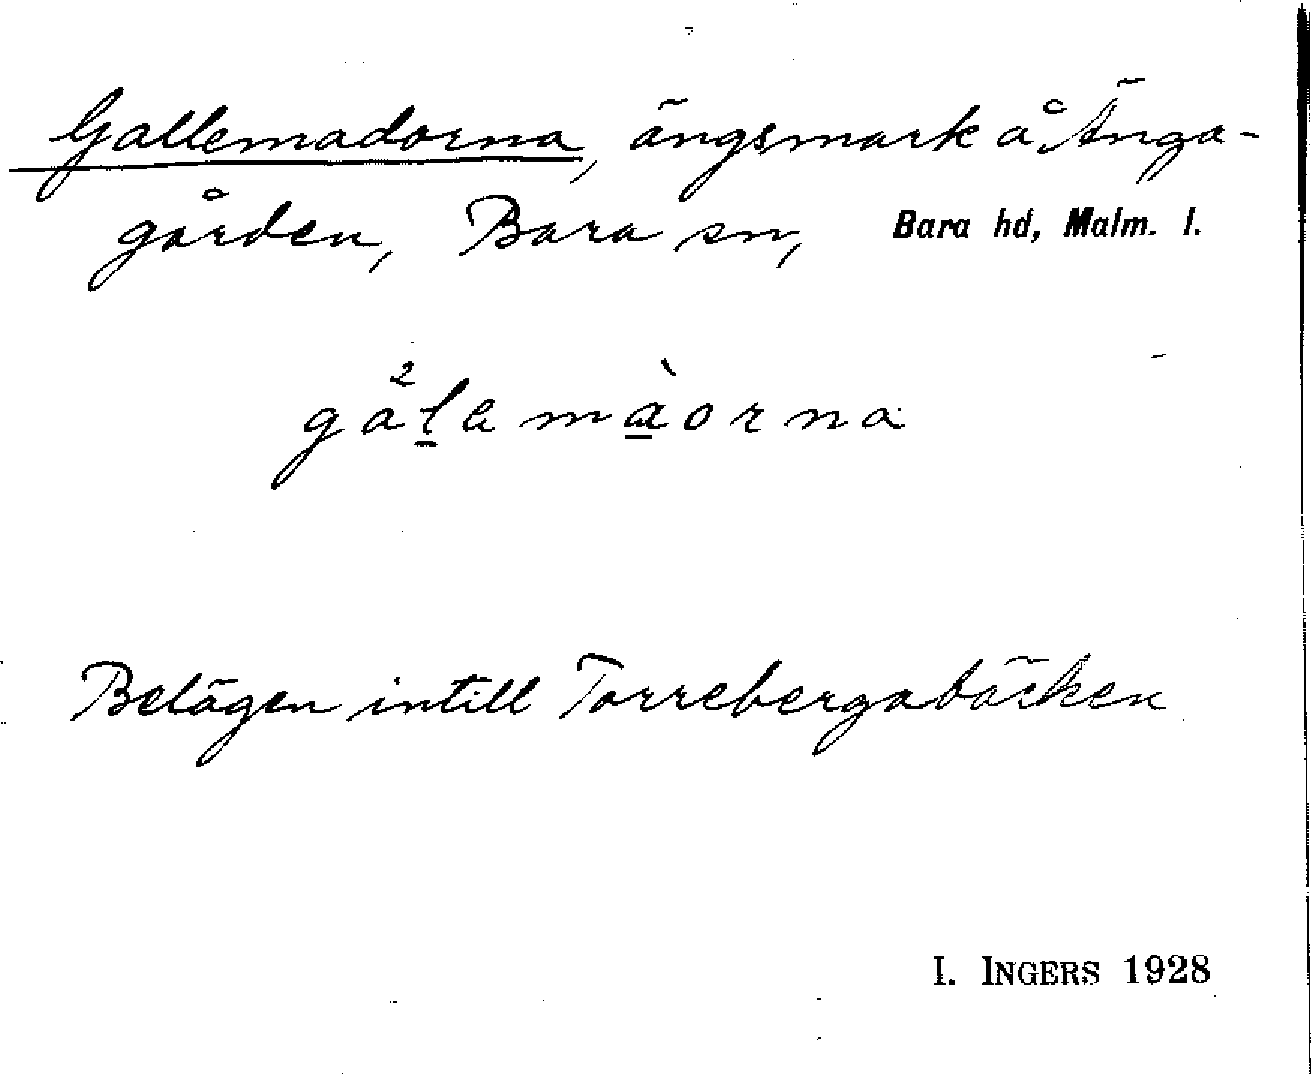 Gallemadorna, ängsmark å Änga-
gården, Bara sn, Bara hd, Malm. l.
ga²lamàorna
Belägen intill Torrebergabäcken
I. INGERS 1928